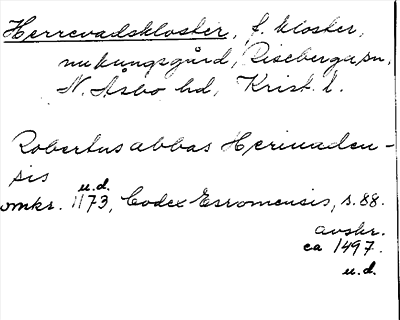 Herrevadskloster, f. kloster,
nu kungsgård, Riseberga sn,
N. Åsbo hd, Krist. l.
Robertus abbas Heriuaden-
sis
u.d.
omkr. 1173, Codex Esromensis, s. 88.
avskr.
ca 1497.
u.d.